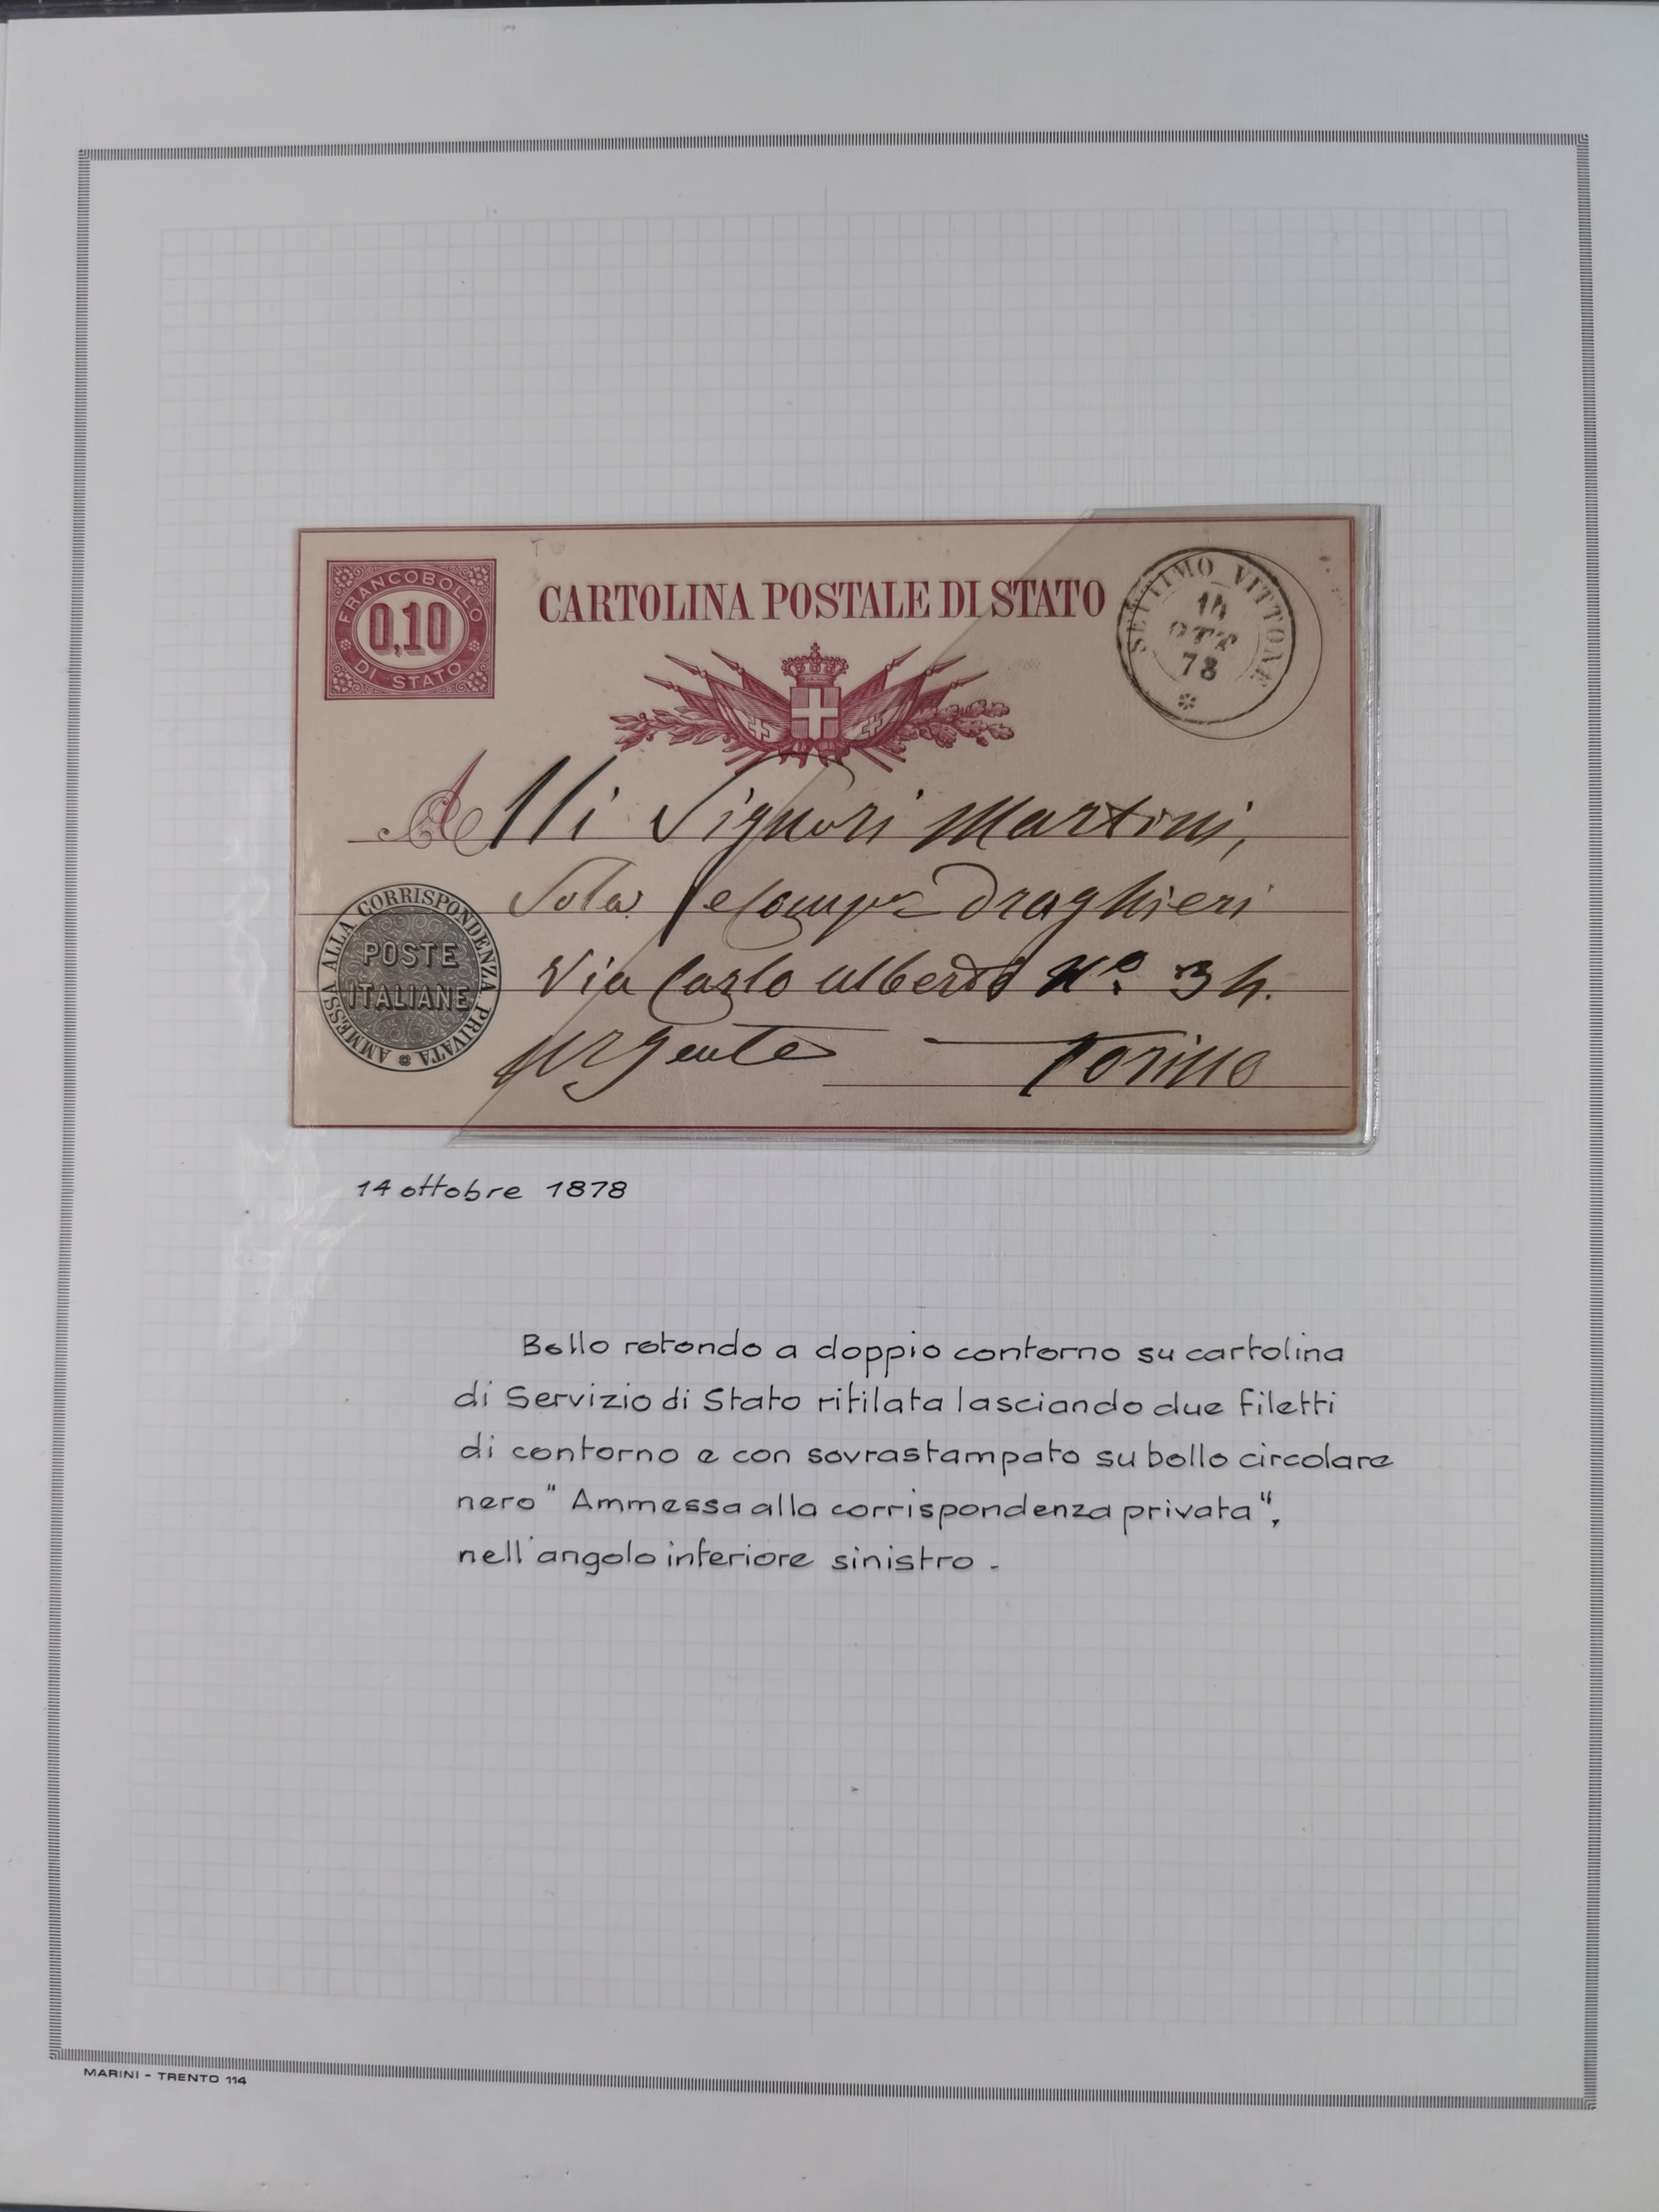 FRANCOBOLLO
0,10
DI STATO
CARTOLINA POSTALE DI STATO
SETTIMO VITTONE
14
OTT
78
Alli Signori Martini,
Sola e Comp. Draghieri
Via Carlo Alberto N.º 34.
Urgente Torino
AMMESSA ALLA CORRISPONDENZA PRIVATA
POSTE
ITALIANE
14 ottobre 1878
Bollo rotondo a doppio contorno su cartolina
di Servizio di Stato rifilata lasciando due filetti
di contorno e con sovrastampato su bollo circolare
nero " Ammessa alla corrispondenza privata",
nell'angolo inferiore sinistro.
MARINI - TRENTO 114